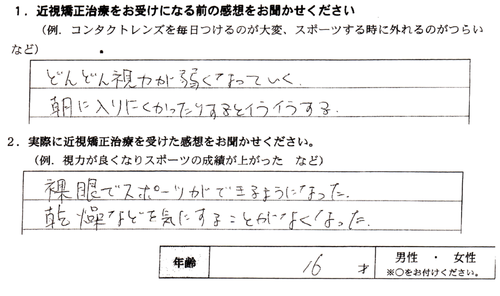 1. 近視矯正治療をお受けになる前の感想をお聞かせください
(例. コンタクトレンズを毎日つけるのが大変、スポーツする時に外れるのがつらい
など)
どんどん視力が弱くなっていく.
朝に入りにくかったりするとイライラする.
2. 実際に近視矯正治療を受けた感想をお聞かせください。
(例. 視力が良くなりスポーツの成績が上がった など)
裸眼でスポーツができるようになった.
乾燥などを気にすることがなくなった.
年齢 16 才 男性 ・ 女性
※○をお付けください。